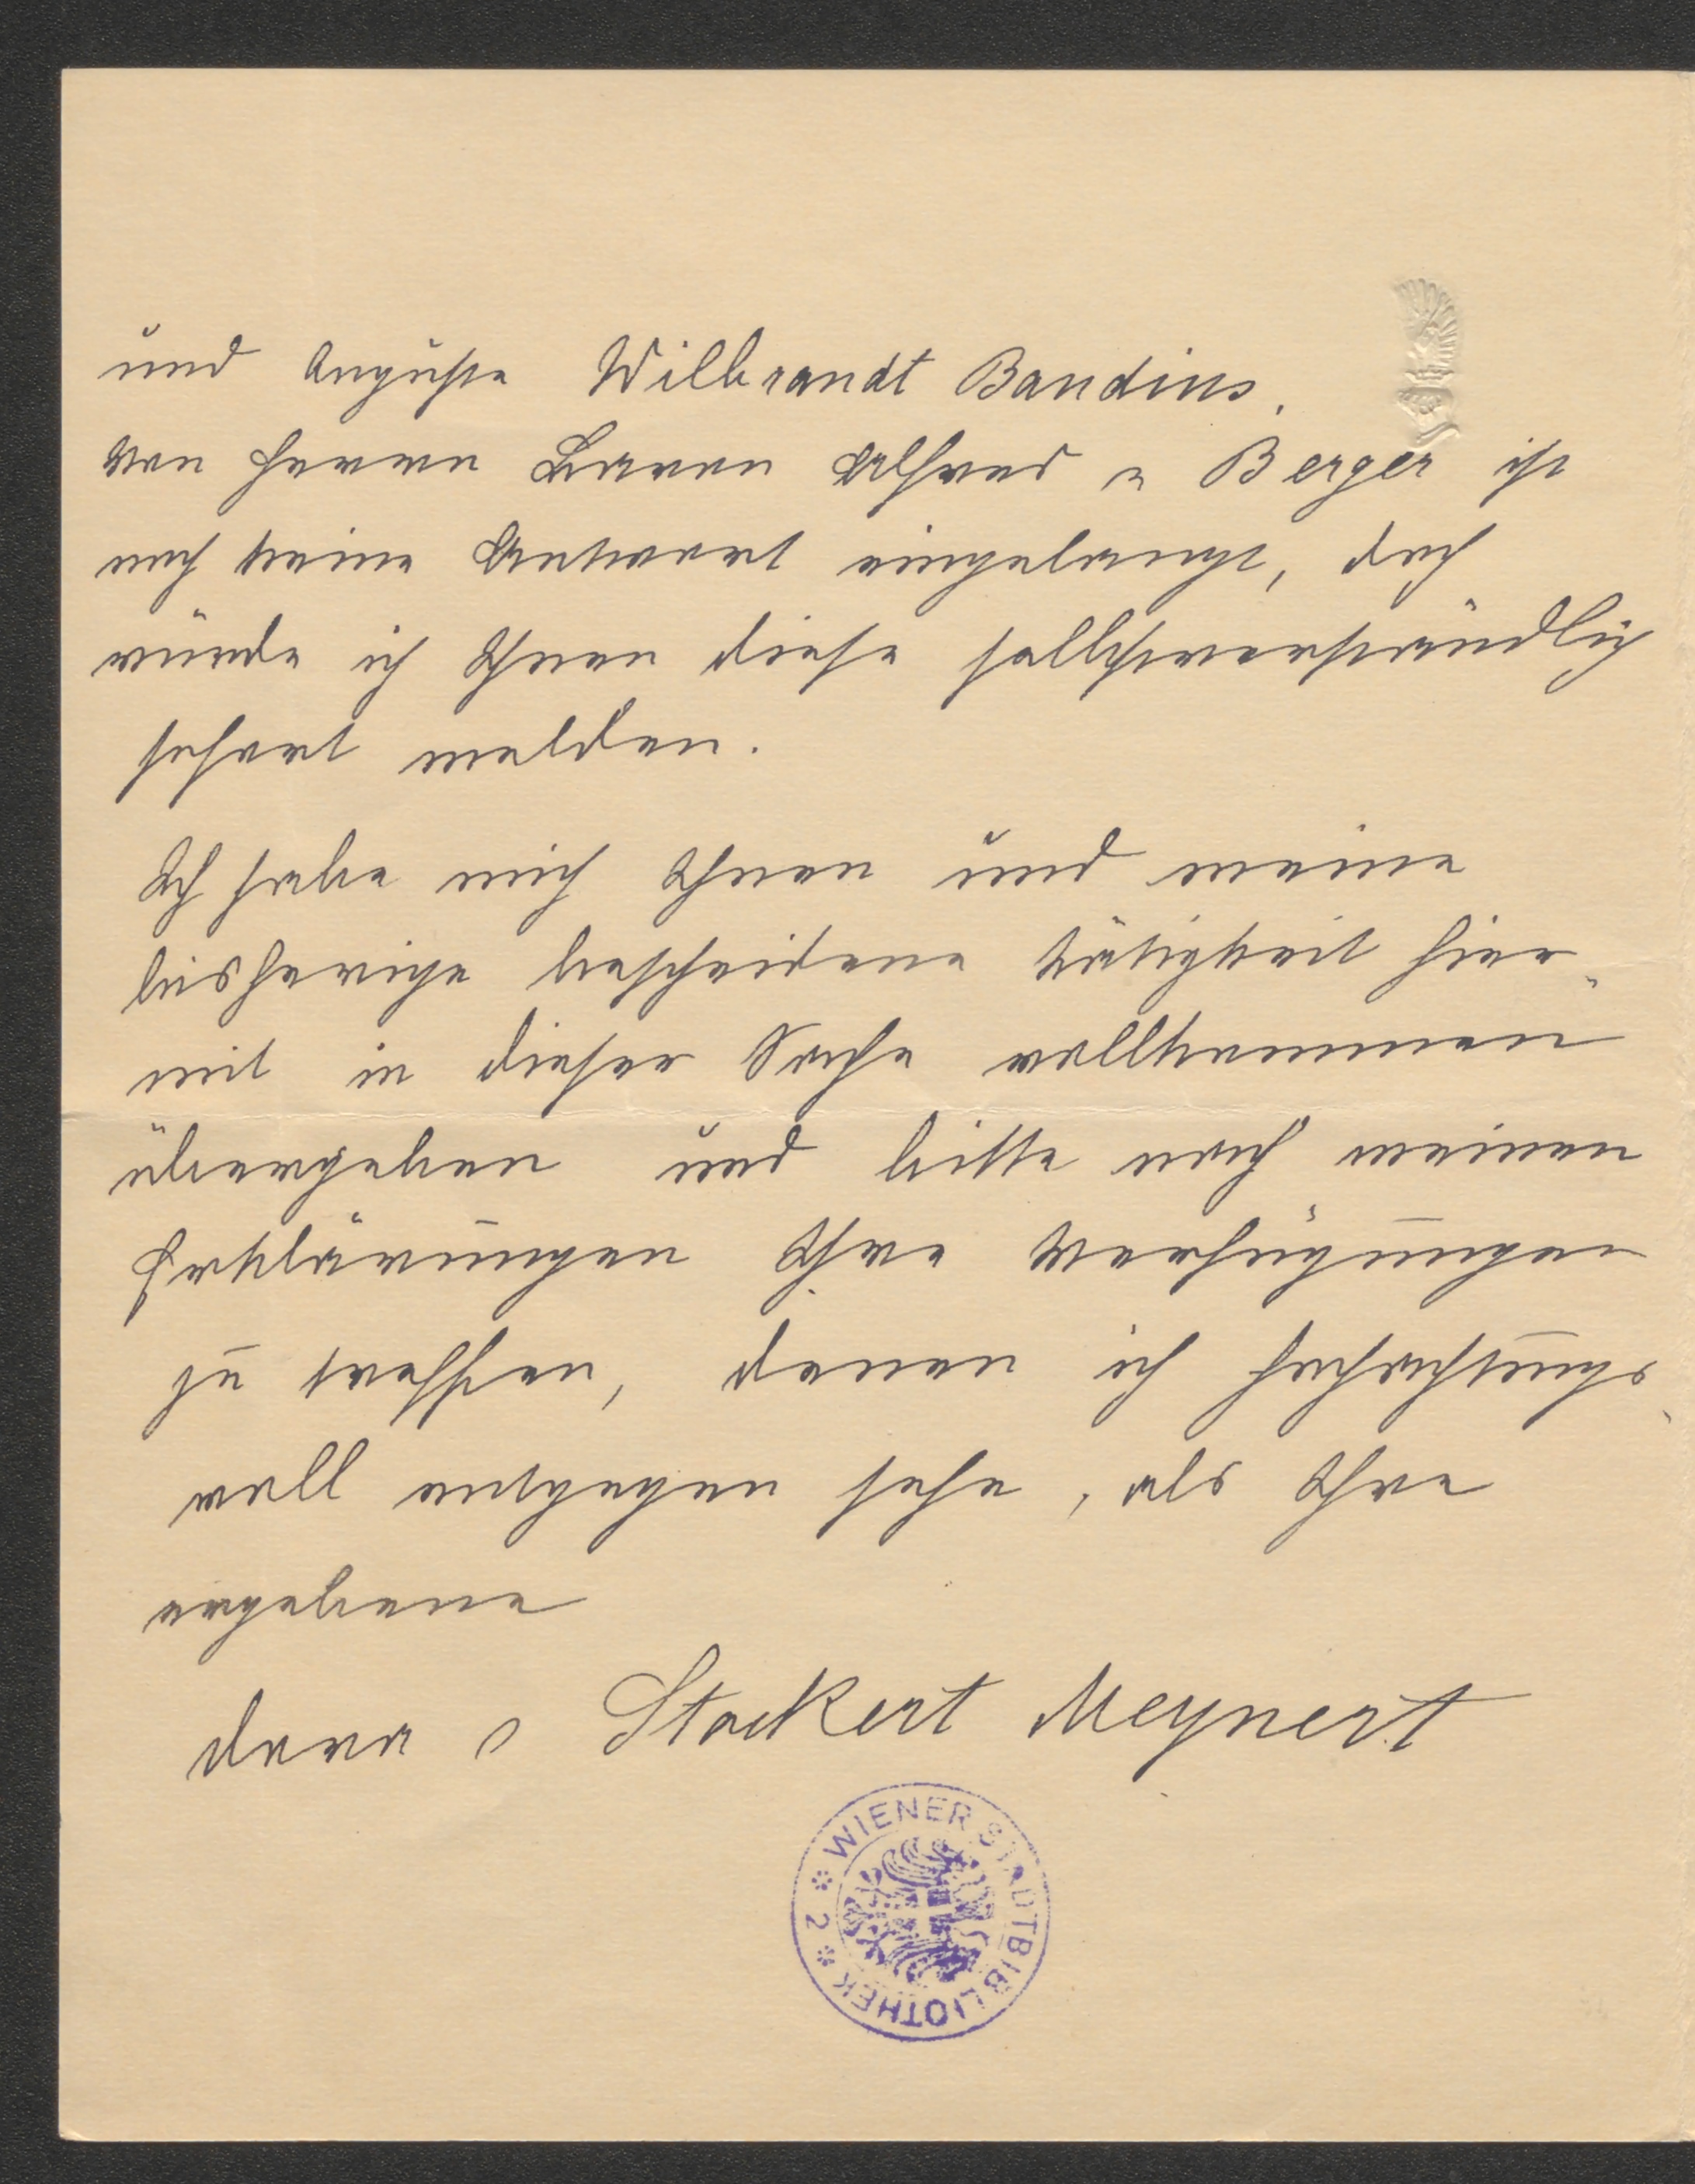 und Auguste Wilbrandt Baudius.
Von Herrn Baron Alfred v Berger ist
noch keine Antwort eingelangt, doch
würde ich Ihnen diese selbstverständlich
sofort melden.
Ich habe mich Ihnen und meine
bisherige bescheidene Tätigkeit hier-
mit in dieser Sache vollkommen
übergeben und bitte nach meinen
Erklärungen Ihre Verfügungen
zu treffen, denen ich hochachtungs-
voll entgegen sehe, als Ihre
ergebene
Dora v Stockert Meynert
* WIENER STADTBIBLIOTHEK * 2